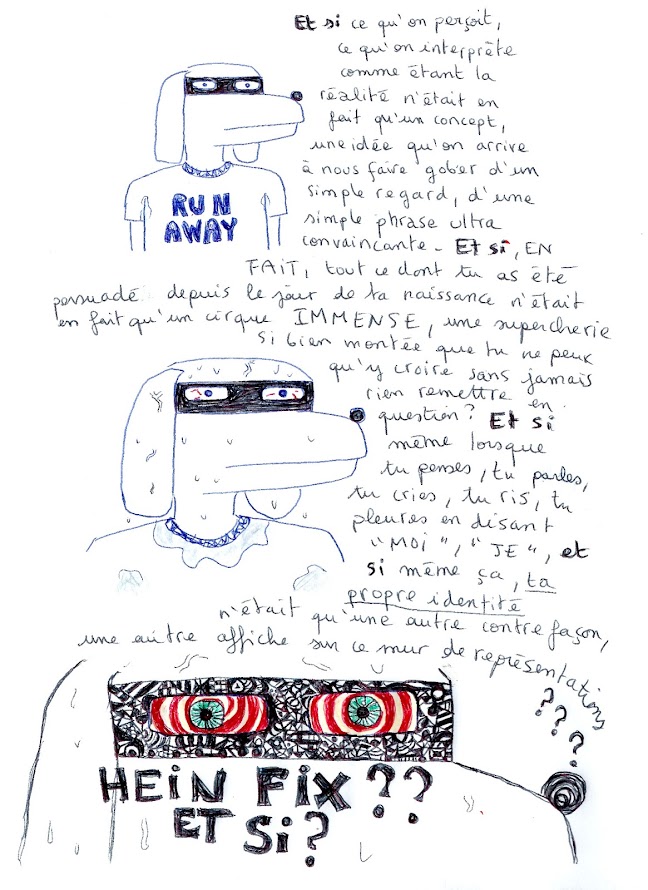 Et si ce qu'on perçoit,
ce qu'on interprète
comme étant la
réalité n'était en
fait qu'un concept,
une idée qu'on arrive
à nous faire gober d'un
simple regard, d'une
simple phrase ultra
convaincante. Et si, EN
FAiT, tout ce dont tu as été
persuadé depuis le jour de ta naissance n'était
en fait qu'un cirque IMMENSE, une supercherie
si bien montée que tu ne peux
qu'y croire sans jamais
rien remettre en
question? Et si
même lorsque
tu penses, tu parles,
tu cries, tu ris, tu
pleures en disant
"MOi", "JE", et
si même ça, ta
propre identité
n'était qu'une autre contrefaçon,
une autre affiche sur ce mur de représentations
???
RUN
AWAY
HEiN FiX??
ET Si?